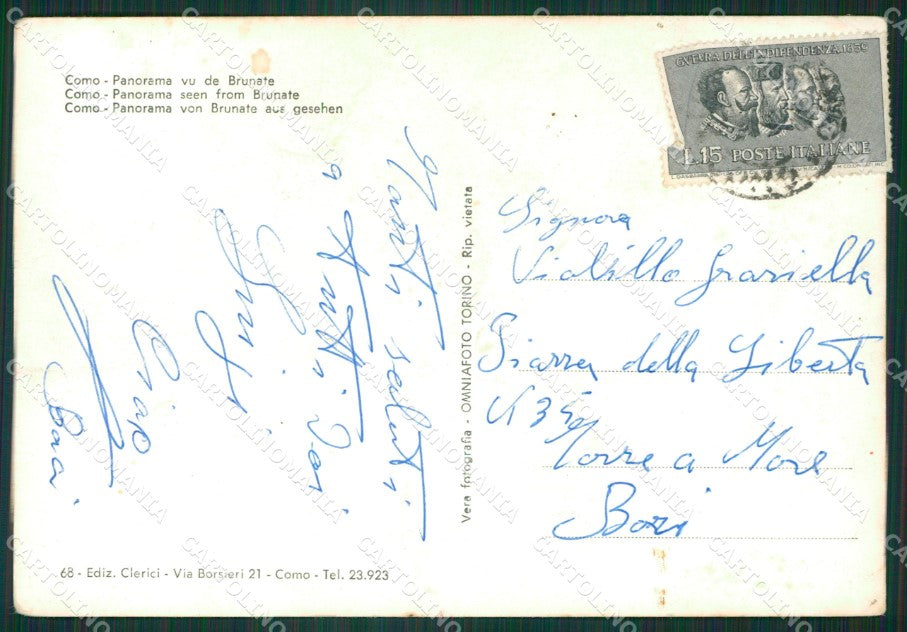 Como - Panorama vu de Brunate
Como - Panorama seen from Brunate
Como - Panorama von Brunate aus gesehen
GUERRA DELL'INDIPENDENZA 1859
L.15 POSTE ITALIANE
Tanti saluti
a tutti voi
Luigi
Ciao
Baci
Vera fotografia - OMNIAFOTO TORINO - Rip. vietata
Signora
Graziella
Piazza della Liberta
N 35
Torre a Mare
Bari
68 - Ediz. Clerici - Via Borsieri 21 - Como - Tel. 23.923
CARTOLINOMANIA